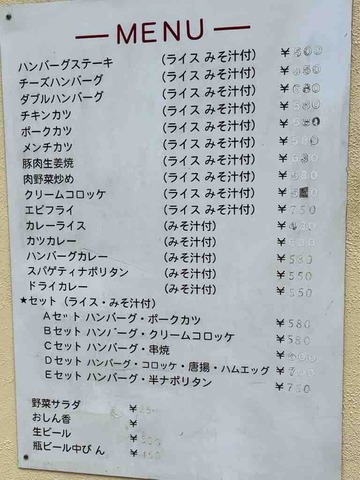 MENU
ハンバーグステーキ (ライス みそ汁付) ¥500
チーズハンバーグ (ライス みそ汁付) ¥550
ダブルハンバーグ (ライス みそ汁付) ¥680
チキンカツ (ライス みそ汁付) ¥580
ポークカツ (ライス みそ汁付) ¥550
メンチカツ (ライス みそ汁付) ¥580
豚肉生姜焼 (ライス みそ汁付) ¥580
肉野菜炒め (ライス みそ汁付) ¥
クリームコロッケ (ライス みそ汁付) ¥
エビフライ (ライス みそ汁付) ¥750
カレーライス (みそ汁付) ¥
カツカレー (みそ汁付) ¥
ハンバーグカレー (みそ汁付) ¥580
スパゲティナポリタン (みそ汁付) ¥550
ドライカレー (みそ汁付) ¥550
★セット (ライス・みそ汁付)
Aセット ハンバーグ・ポークカツ ¥580
Bセット ハンバーグ・クリームコロッケ ¥580
Cセット ハンバーグ・串焼 ¥600
Dセット ハンバーグ・コロッケ・唐揚・ハムエッグ ¥700
Eセット ハンバーグ・半ナポリタン ¥750
野菜サラダ ¥250
おしん香 ¥
生ビール ¥500
瓶ビール中びん ¥450